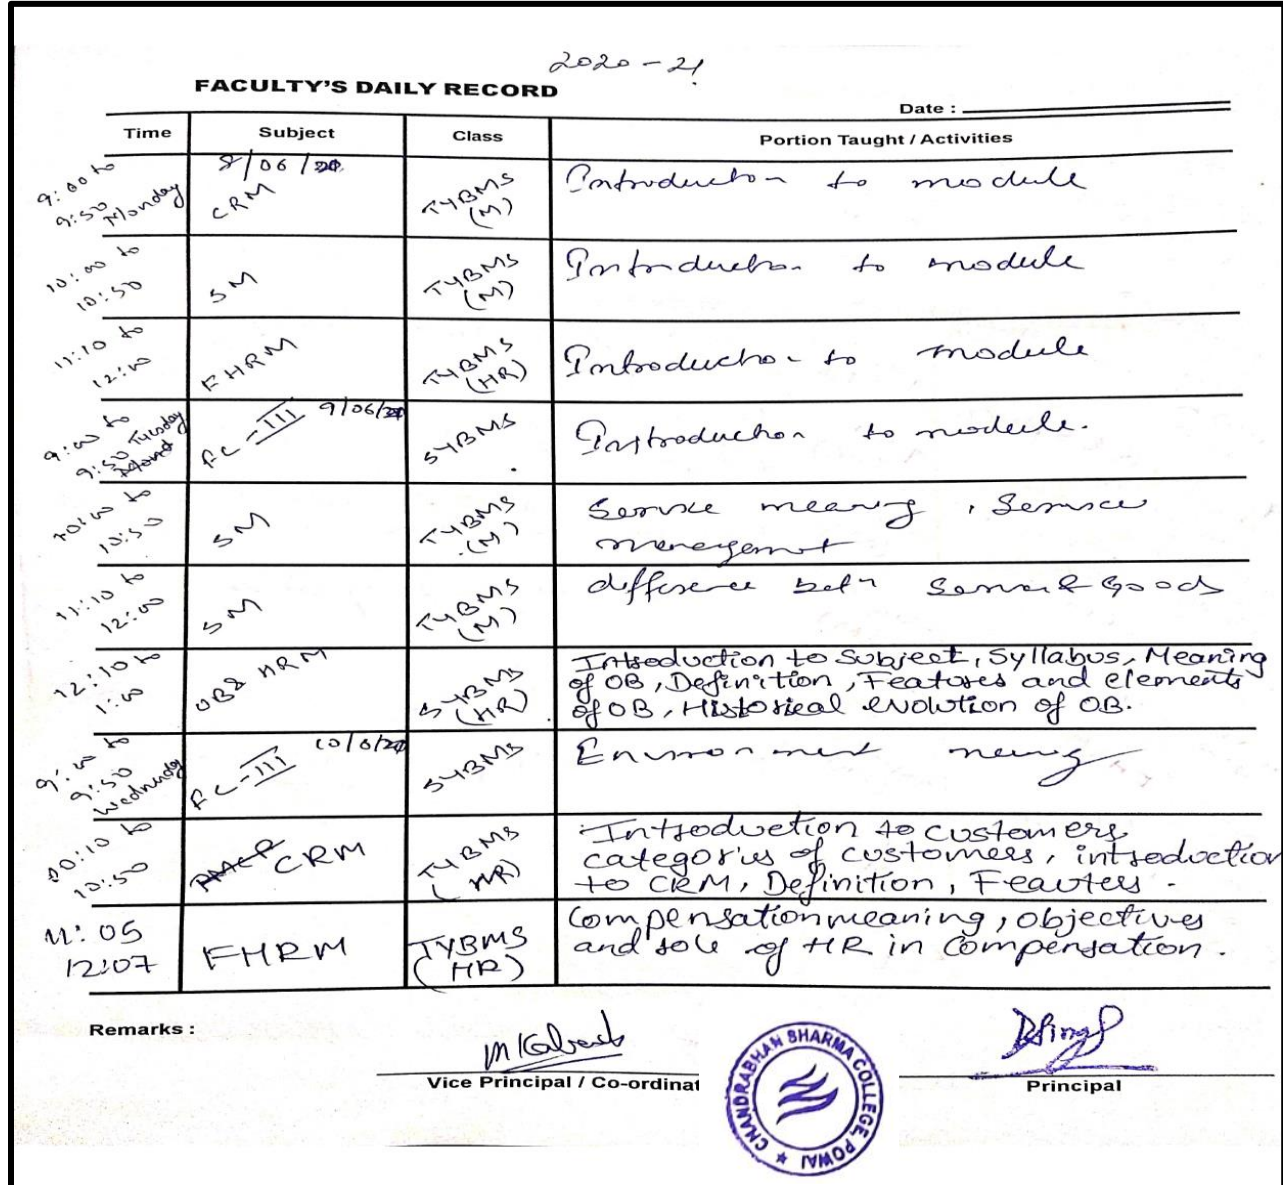 2020-21
FACULTY'S DAILY RECORD
Date :
Time Subject Class Portion Taught / Activities
9:00 to 9:50 Monday 8/06/20 CRM TYBMS (M) Introduction to module
10:00 to 10:50 SM TYBMS (M) Introduction to module
11:10 to 12:00 FHRM TYBMS (HR) Introduction to module
9:00 to 9:50 Tuesday FC-III 9/06/20 SYBMS Introduction to module.
10:00 to 10:50 SM TYBMS (M) Service meaning, Service
management
11:10 to 12:00 SM TYBMS (M) difference betn Service & Goods
12:10 to 1:00 OB& HRM SYBMS (HR) Introduction to Subject, Syllabus, Meaning
of OB, Definition, Features and elements
of OB, Historical evolution of OB.
9:00 to 9:50 Wednesday FC-III 10/6/20 SYBMS Environment
10:10 to 10:50 CRM TYBMS (HR) Introduction to customers
categories of customers, introduction
to CRM, Definition, Feauters.
11:05 12:07 FHRM TYBMS (HR) Compensation meaning, objectives
and role of HR in Compensation.
Remarks :
Vice Principal / Co-ordinat
Principal
CHANDRABHAN SHARMA COLLEGE, POWAI